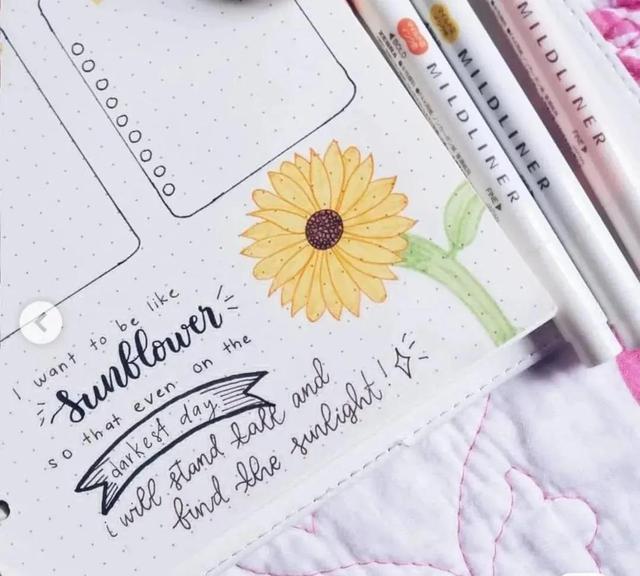 i want to be like
sunflower
so that even on the
darkest day
i will stand tall and
find the sunlight!
BOLD MILDLINER FINE
MILDLINER
MILDLINER FINE